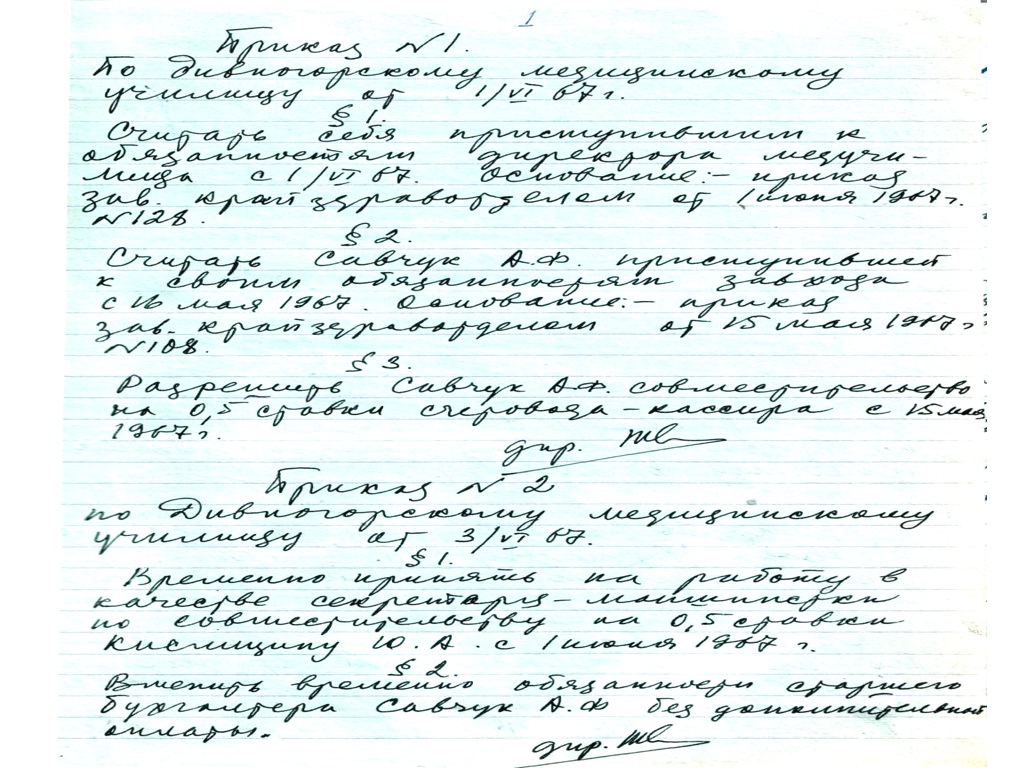 1
Приказ N1.
По Дивногорскому медицинскому
училищу от 1/VI 67 г.
§ 1.
Считать себя приступившим к
обязанностям директора медучи-
лища с 1/VI 67. Основание:- приказ
зав. крайздравотделом от 1 июня 1967 г.
N128.
§ 2.
Считать Савчук А.Ф. приступившей
к своим обязанностям завхоза
с 16 мая 1967. Основание:- приказ
зав. крайздравотделом от 15 мая 1967 г
N108.
§ 3.
Разрешить Савчук А.Ф. совместительство
на 0,5 ставки счетовода-кассира с 15 мая
1967 г.
дир.
Приказ N 2
по Дивногорскому медицинскому
училищу от 3/VI 67.
§ 1.
Временно принять на работу в
качестве секретаря-машинистки
по совместительству на 0,5 ставки
Кислицину Ю.А. с 1 июня 1967 г.
§ 2.
Вменить временно обязанности старшего
бухгалтера Савчук А.Ф без дополнительной
оплаты.
дир.